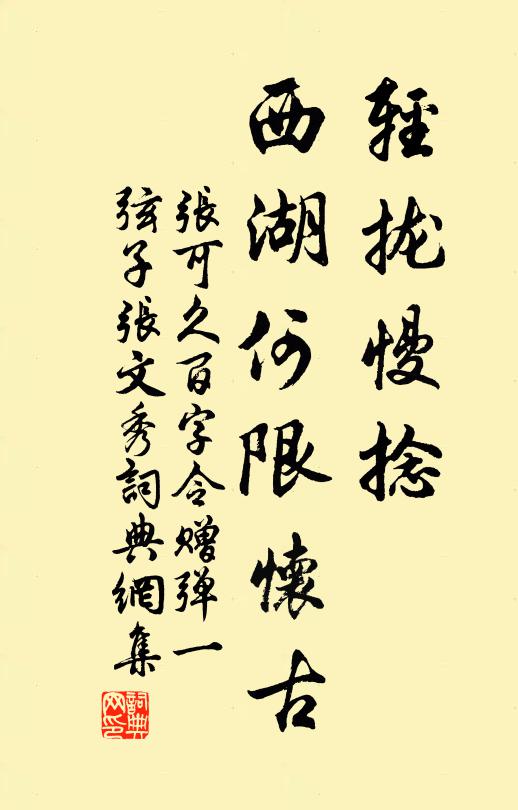 輕拢慢捻
西湖何限懷古
張可久百字令赠弹一
弦子張文秀詞典網集
詞典
网印